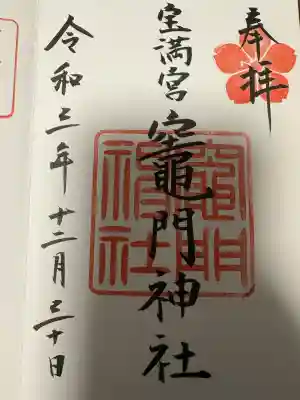 奉拝
宝満宮
竈門神社
竈門
神社
令和三年十二月三十日